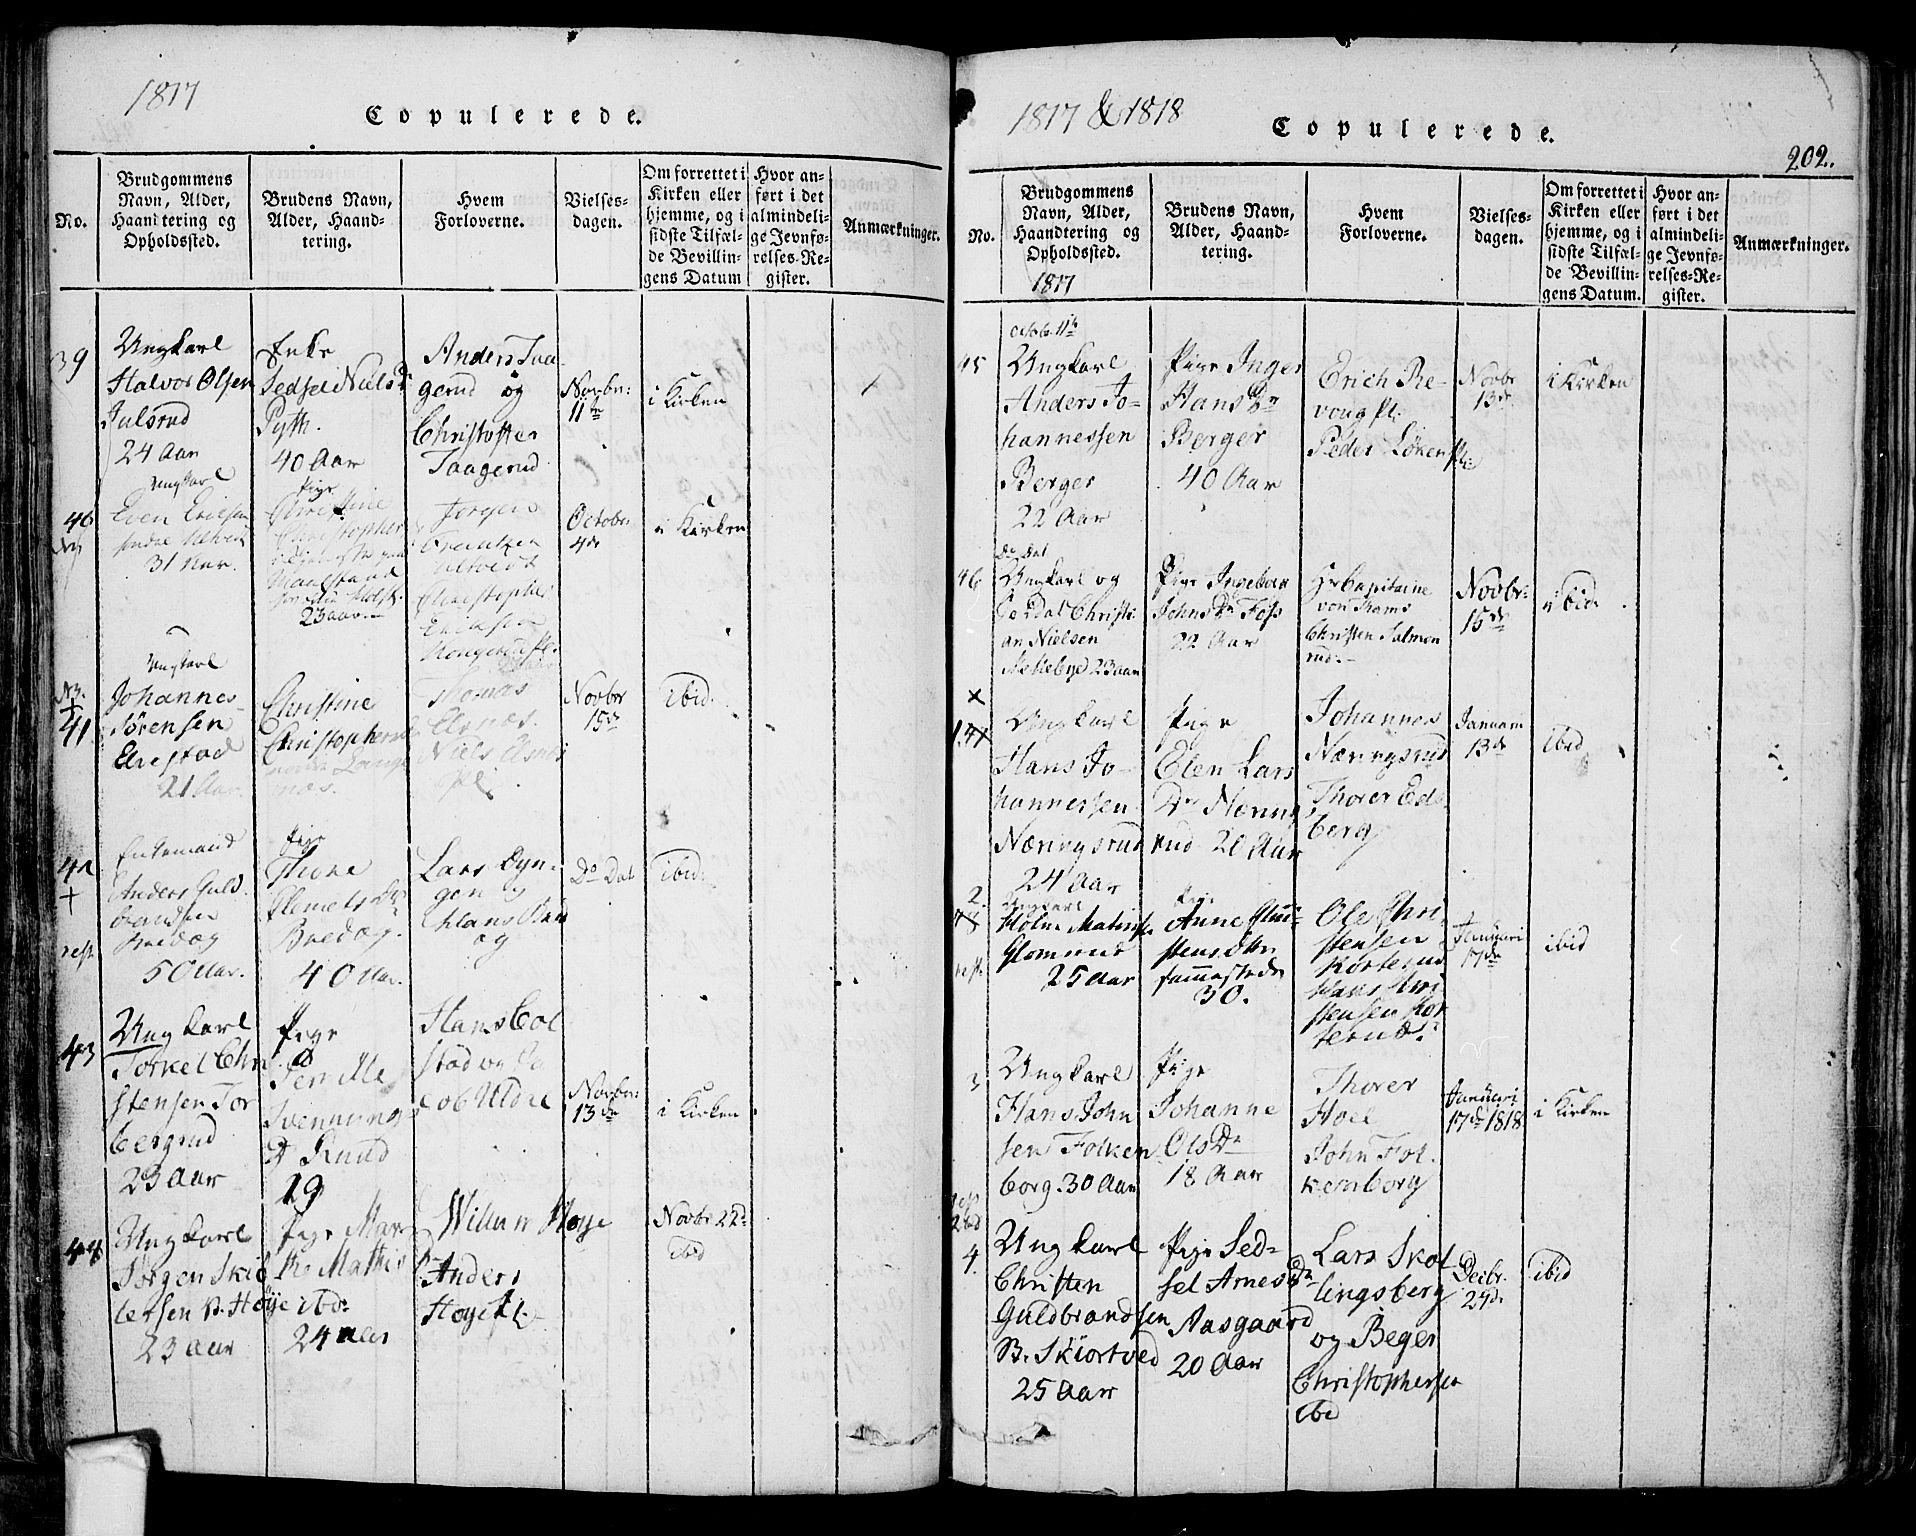 1817
Copulerede.
No.
Brudgommens
Navn, Alder,
Haandtering og
Opholdssted.
Brudens Navn,
Alder, Haand-
tering.
Hvem
Forloverne.
Vielses-
dagen.
Om forrettet i
Kirken eller
hjemme, og i
sidste Tilfæl-
de Bevillin-
gens Datum
Hvor an-
ført i det
almindeli-
ge Jevnfø-
relses-Re-
gister.
Anmærkninger.
39
Ungkarl
Halvor Olsen
Julsrud
24 Aar
Enke
Sedsel Niels Dr
Pyth.
40 Aar
Anders Taa-
gerud og
Christoffer
Taagerud
Novbr:
11te
i Kirken
40
Ungkarl
Even Ericsen
31 Aar.
Pige
Christine
Christopher
23 aar.
Jørgen
Christopher
Ericksen
October
4de
i Kirken
41
Ungkarl
Johannes
Sørensen
21 Aar.
Christine
Christophersd
Thomas
Niels
Novbr
15de
ibid.
42
Enkemand
Anders Guld-
brandsen
Bredag
50 Aar.
Pige
Thore
Klemets Dr
Bredag.
40 Aar.
Lars Dyn-
gen og
Do Dat
ibid:
43
Ungkarl
Torkel Chri
stensen Tor
bergrud
23 Aar
Pige
Pernille
Svennungs
D Ruud
19
Hans Col
stad og Ja
cob Uldre
Novbr:
13de
i Kirken
44
Ungkarl
Jørgen Skiø
lersen B. Høye
23 aar
Pige Mar
the Mathis Dr
ibd:
24 aar
Willum Høye
Anders
Høye Pl.
Novbr 22d
ibid
1817 & 1818
Copulerede.
202.
No.
Brudgommens
Navn, Alder,
Haandtering og
Opholdssted.
1817
Brudens Navn,
Alder, Haand-
tering.
Hvem
Forloverne.
Vielses-
dagen.
Om forrettet i
Kirken eller
hjemme, og i
sidste Tilfæl-
de Bevillin-
gens Datum.
Hvor an-
ført i det
almindeli-
ge Jevnfø-
relses-Re-
gister.
Anmærkninger.
45
Octob. 11te
Ungkarl
Anders Jo-
hannessen
Berger
22 Aar
Pige Inger
Hans Dr
Berger
40 Aar
Erich Re-
voug Pl:
Peder Løken Pl:
Novbr
13de
i Kirken
46
Do Dat
Ungkarl og
Soldat Christi-
an Nielsen
23 aar
Pige Ingeborg
Johns Dr Foss
22 Aar
Hr Capitaine
von Krams
Christen Salmon
rud.
Novbr:
15de
ibid.
1.
Ungkarl
Hans Jo-
hannessen
Næringsrud
24 Aar
Pige
Elen Lars
Dr Næring
rud 20 Aar
Johannes
Næringsrud
Thorer Eds
berg
Januari
13de
ibid
2.
Ungkarl
Glomerud
25 Aar
Pige
Anne Chri-
stensdtr
sammesteds
30.
Ole Chri
stensen
Korterud
Hans Chri
stensen Kor
terud.
Januari
17de
ibid
3
Ungkarl
Hans John
sen Folken
borg. 30 Aar
Pige
Johanne
Ols Dr
18 Aar
Thorer
Hoel
John Fol-
kenborg
Januari
17de 1818
i Kirken
4.
Ungkarl
Christen
Guldbrandsen
B. Skiortved
25 Aar
Pige Sed-
sel Arnes Dr
Aasgaard
20 Aar
Lars Skol
lingsberg
og Beger
Christophersen
ibd
Decbr.
29de
ibid